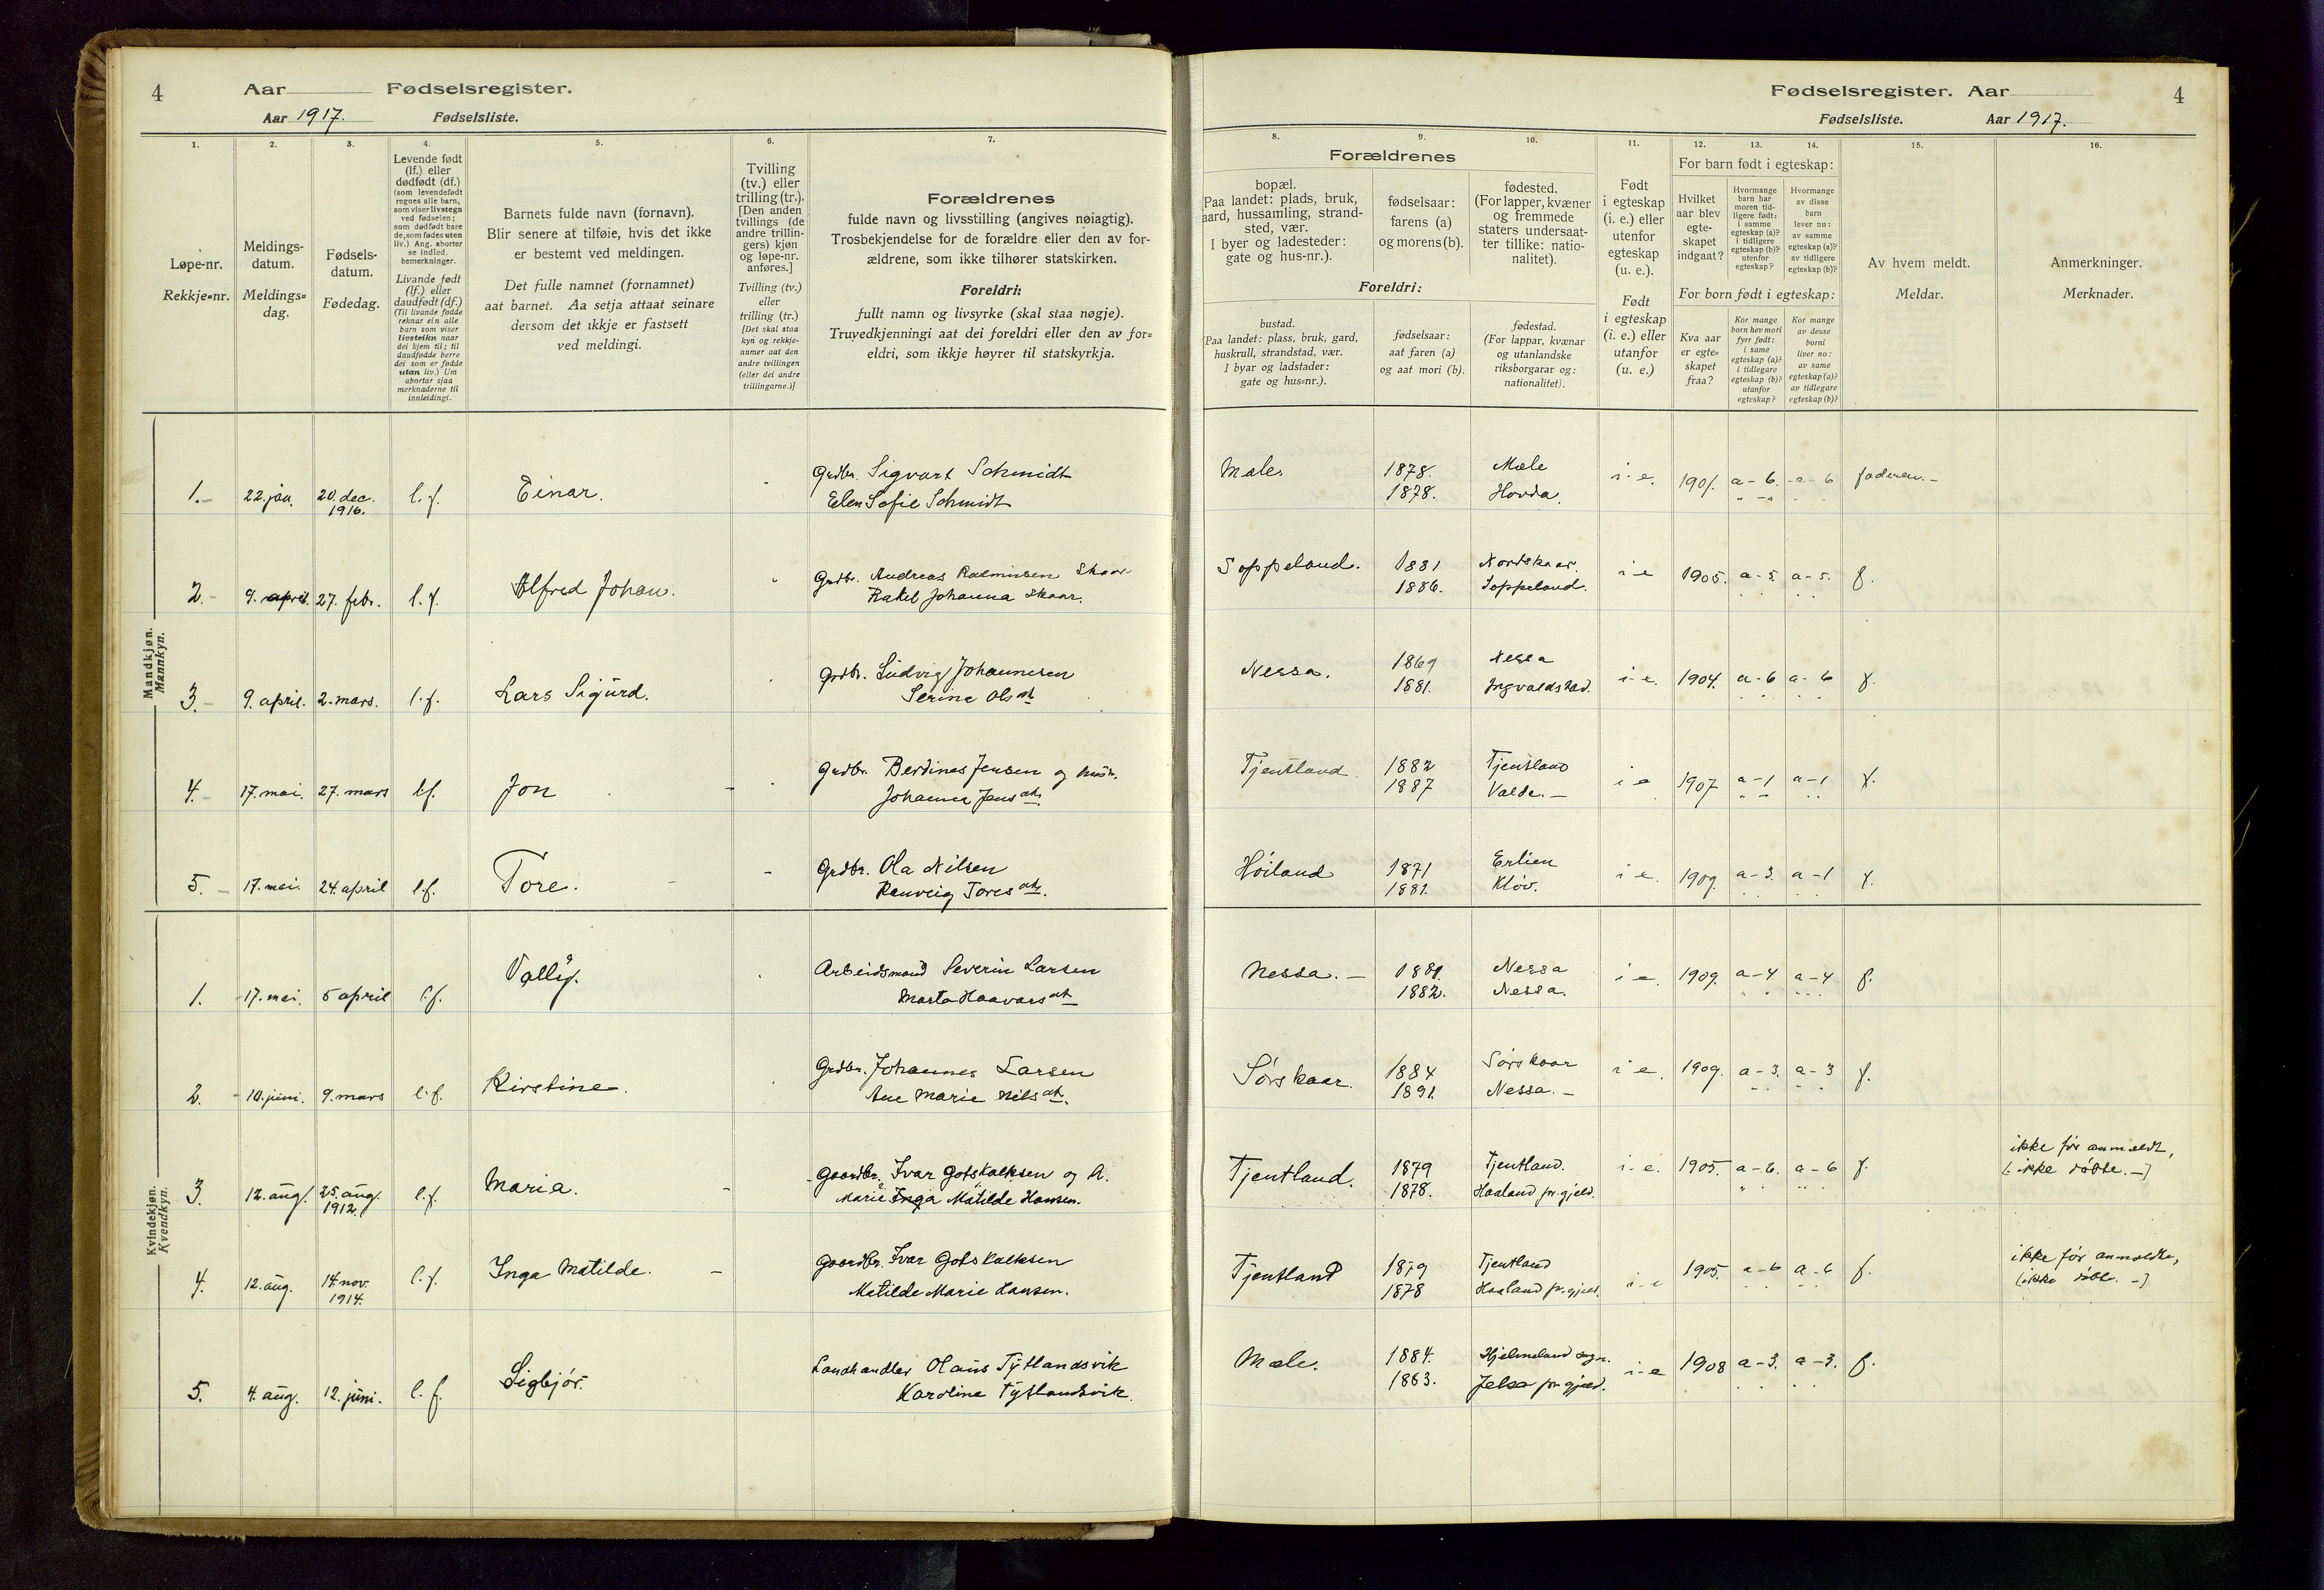 4 Aar Fødselsregister.
Aar 1917. Fødselsliste.
1. 2. 3. 4. 5. 6. 7.
Løpe-nr.
Rekkje=nr.
Meldings-
datum.
Meldings=
dag.
Fødsels-
datum.
Fødedag.
Levende født
(lf.) eller
dødfødt (df.)
(som levendefødt
regnes alle barn,
som viser livstegn
ved fødselen;
som dødfødt bare
de, som fødes uten
liv.) Ang. aborter
se indled.
bemerkninger.
Livande født
(lf.) eller
daudfødt (df.)
(Til livande fødde
reknar ein alle
barn som viser
livsteikn naar
dei kjem til; til
daudfødde berre
dei som er fødde
utan liv.) Um
abortar sjaa
merknaderne til
innleidingi.
Barnets fulde navn (fornavn).
Blir senere at tilføie, hvis det ikke
er bestemt ved meldingen.
Det fulle namnet (fornamnet)
aat barnet. Aa setja attaat seinare
dersom det ikkje er fastsett
ved meldingi.
Tvilling
(tv.) eller
trilling (tr.).
[Den anden
tvillings (de
andre trillin-
gers) kjøn
og løpe-nr.
anføres.]
Tvilling (tv.)
eller
trilling (tr.)
[Det skal staa
kyn og rekkje-
numer aat den
andre tvillingen
(eller dei andre
trillingarne.)]
Forældrenes
fulde navn og livsstilling (angives nøiagtig).
Trosbekjendelse for de forældre eller den av for-
ældrene, som ikke tilhører statskirken.
Foreldri:
fullt namn og livsyrke (skal staa nøgje).
Truvedkjenningi aat dei foreldri eller den av for=
eldri, som ikkje høyrer til statskyrkja.
Mandkjøn.
Mannkyn.
1. 22. jan. 20. dec. 1916. l. f. Einar. Grdbr. Sigvart Schmidt
Elen Sofie Schmidt
2. 9. april. 27. febr. l. f. Alfred Johan. Grdbr. Andreas Rasmussen Skaar
Rakel Johanna Skaar.
3. 9. april. 2. mars. l. f. Lars Sigurd. Grdbr. Ludvig Johannesen
Serine Olsdt
4. 17. mai. 27. mars lf. Jon Grdbr. Berdines Jensen og hustr.
Johanna Jensdt.
5. 17. mai. 24. april l.f. Tore. Grdbr. Ola Nilsen
Renveig Toresdt.
Kvindekjøn.
Kvendkyn.
1. 17. mai. 5 april l.f. Vally. Arbeidsmand Severin Larsen
Marta Haavarsdt
2. 10. juni. 9. mars l.f. Kirstine. Grdbr. Johannes Larsen
Ane Marie Nilsdt.
3. 12. aug. 25. aug. 1912. l. f. Maria. Gaardbr. Ivar Gotskalksen og h.
Marie Inga Matilde Hansen.
4. 12. aug. 14. nov. 1914. l. f. Inga Matilde. Gaardbr. Ivar Gotskalksen
Matilde Marie Hansen.
5. 4. aug. 12. juni. l. f. Sigbjør. Landhandler Olaus Tytlandsvik
Karoline Tytlandsvik.
Fødselsregister. Aar 4
Fødselsliste. Aar 1917.
8. 9. 10. 11. 12. 13. 14. 15. 16.
Forældrenes
bopæl.
(Paa landet: plads, bruk,
gaard, hussamling, strand-
sted, vær.
I byer og ladesteder:
gate og hus-nr.).
fødselsaar:
farens (a)
og morens (b).
fødested.
(For lapper, kvæner
og fremmede
staters undersaat-
ter tillike: natio-
nalitet).
Foreldri:
bustad.
(Paa landet: plass, bruk, gard,
huskrull, strandstad, vær.
I byar og ladstader:
gate og hus=nr.).
fødselsaar:
aat faren (a)
og aat mori (b).
fødestad.
(For lappar, kvænar
og utanlandske
riksborgarar og:
nationalitet).
Født
i egteskap
(i. e.) eller
utenfor
egteskap
(u. e.).
Født
i egteskap
(i. e.) eller
utanfor
(u. e.)
For barn født i egteskap:
Hvilket
aar blev
egte-
skapet
indgaat?
Hvormange
barn har
moren tid-
ligere født:
i samme
egteskap (a)?
i tidligere
egteskap (b)?
utenfor
egteskap?
Hvormange
av disse
barn
lever nu:
av samme
egteskap (a)?
av tidligere
egteskap (b)?
For born født i egteskap:
Kva aar
er egte=
skapet
fraa?
Kor mange
born hev mori
fyrr født:
i same
egteskap (a)?
i tidlegare
egteskap (b)?
utanfor
egteskap?
Kor mange
av desse
borni
liver no:
av same
egteskap (a)?
av tidlegare
egteskap (b)?
Av hvem meldt.
Meldar.
Anmerkninger.
Merknader.
Mæle. 1878. Mæle i. e. 1901. a - 6. a - 6 faderen.
1878. Hovda.
Soppeland. 1881 Nordskaar. i e 1905. a - 5. a - 5. f.
1886. Soppeland.
Nessa. 1869 Nessa i. e. 1904. a - 6 a - 6 f.
1881. Ingvaldstad.
Tjentland 1882 Tjentland i e 1907 a - 1 a - 1 f.
1887 Valde.
Høiland 1871 Erlien i. e. 1909. a - 3. a - 1 f.
1881. Kløv.
Nessa. 1881. Nessa i e. 1909. a - 4 a - 4 f.
1882. Nessa.
Sørskaar. 1884 Sørskaar i e. 1909. a - 3. a - 3 f.
1891. Nessa.
Tjentland. 1879 Tjentland. i. e. 1905. a - 6. a - 6 f. ikke før anmeldt,
1878. Haaland pr.gjeld. (: ikke døbte. -)
Tjentland 1879 Tjentland i e 1905. a - 6 a - 6 f. ikke før anmeldte,
1878 Haaland pr.gjeld. (ikke døbt. -)
Mæle. 1884. Hjelmeland sogn. i - e 1908 a - 3. a - 3. f.
1883. Jelsa pr.gjeld.